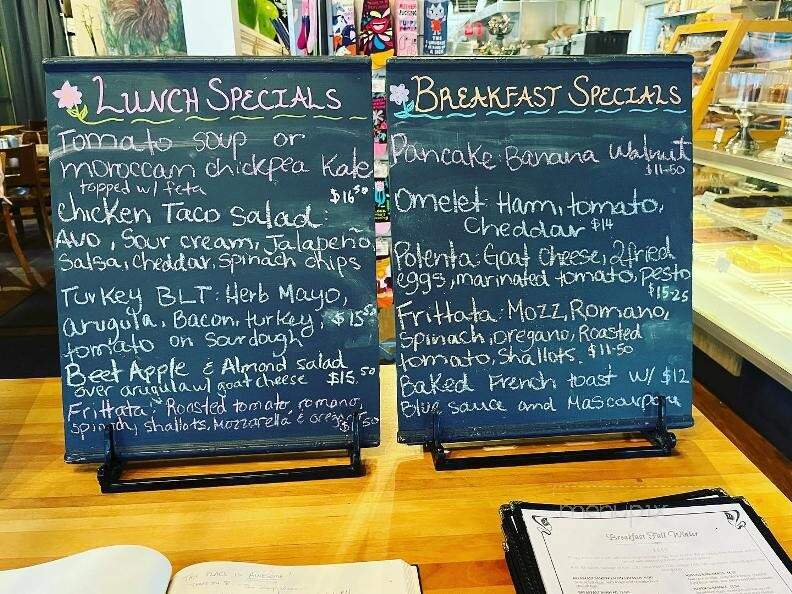 LUNCH SPECIALS
Tomato soup or
moroccan chickpea Kale
topped w/ feta
$16.50
Chicken Taco Salad:
Avo, Sour cream, Jalapeño,
Salsa, cheddar, spinach chips
Turkey BLT: Herb Mayo,
arugula, Bacon, turkey, $15.50
tomato on Sourdough
Beet Apple & Almond salad
over arugula w/ goat cheese $15.50
Frittata: Roasted tomato, romano,
spinach, shallots, Mozzarella &
BREAKFAST SPECIALS
Pancake: Banana Walnut
$11.50
Omelet Ham, tomato,
Cheddar $14
Polenta: Goat Cheese, 2 fried
eggs, marinated tomato, pesto
$15.25
Frittata: Mozz, Romano,
Spinach, oregano, Roasted
tomato, Shallots. $11.50
Baked French toast w/ $12
Blue sauce and Mascarpone
Breakfast Fall Winter
THIS PLACE IS AWESOME